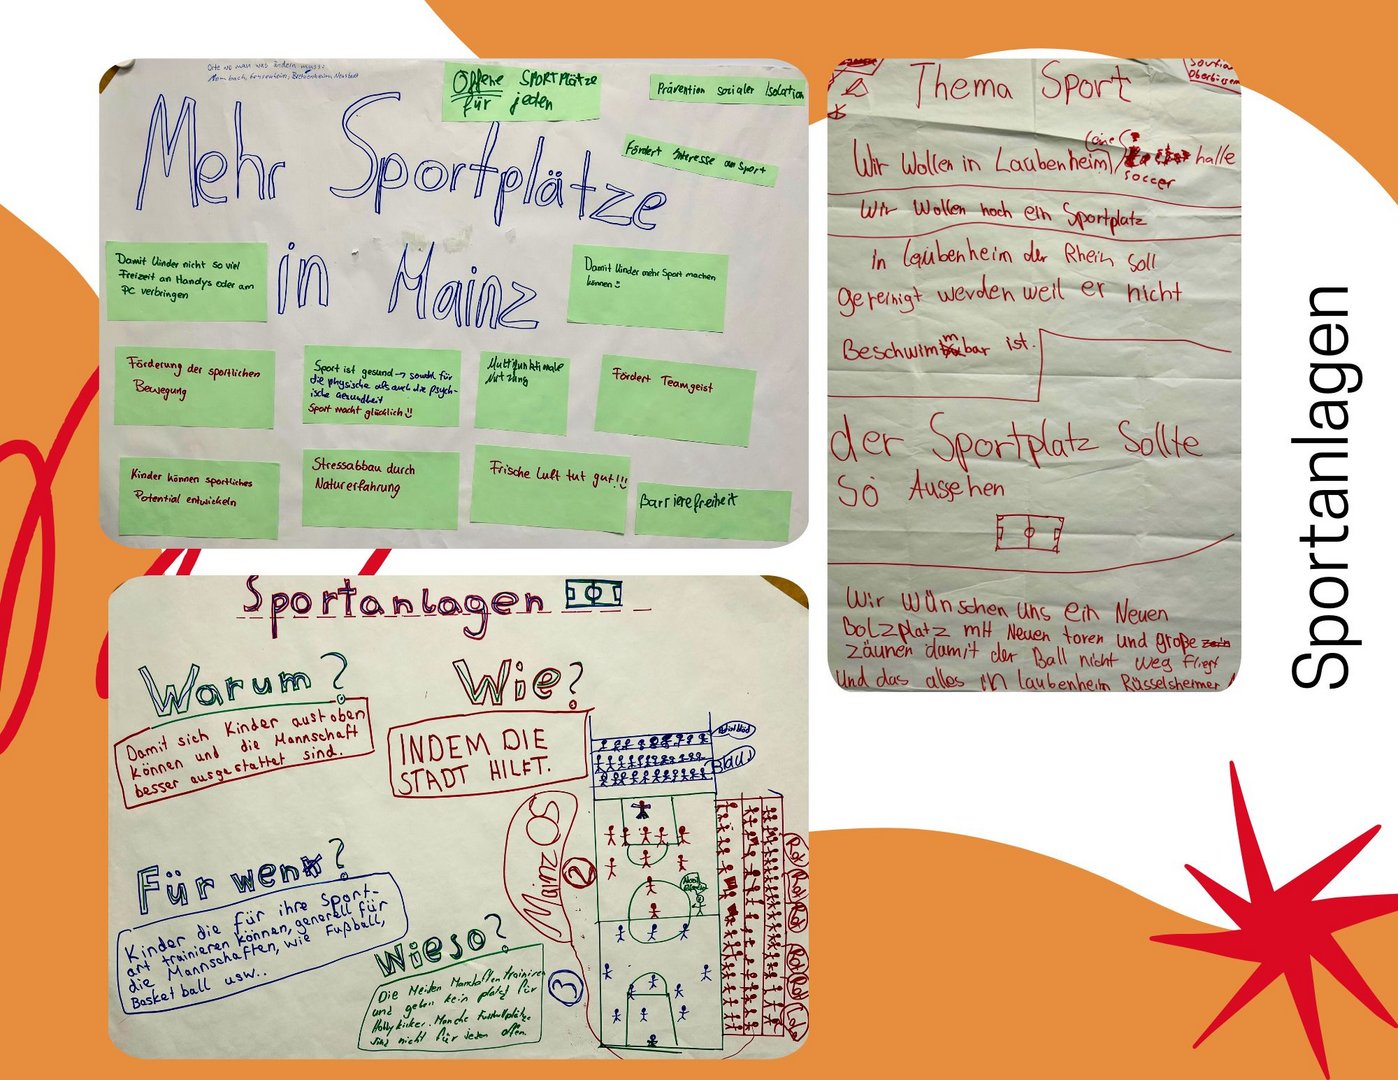 Orte wo man was ändern muss:
Mombach, Gonsenheim, Bretzenheim, Neustadt
Offene SPORTPlätze
für jeden
Prävention sozialer Isolation
Fördert Interesse am Sport
Mehr Sportplätze
in Mainz
Damit Kinder nicht so viel
Freizeit an Handys oder am
PC verbringen
Damit Kinder mehr Sport machen
können
Förderung der sportlichen
Bewegung
Sport ist gesund → sowohl für
die physische als auch die psych-
ische Gesundheit
Sport macht glücklich
Multifunktionale
Nutzung
Fördert Teamgeist
Kinder können sportliches
Potential entwickeln
Stressabbau durch
Naturerfahrung
Frische Luft tut gut!!!
Barrierefreiheit
Thema Sport
Wir Wollen in Laubenheim (eine) soccer halle
Wir Wollen noch ein Sportplatz
in Laubenheim der Rhein soll
gereinigt werden weil er nicht
Beschwimmbar ist.
der Sportplatz Sollte
So Aussehen
Wir wünschen uns ein Neuen
Bolzplatz mit Neuen toren und große
zäunen damit der Ball nicht weg fliegt
und das alles in Laubenheim Rüsselsheimer
Sportanlagen
Sportanlagen
Warum?
Damit sich Kinder austoben
können und die Mannschaft
besser ausgestattet sind.
Wie?
INDEM DIE
STADT HILFT.
Für wen?
Kinder die für ihre Sport-
art trainieren können, generell für
die Mannschaften, wie Fußball,
Basketball usw..
Wieso?
Die Meisten Manschaften trainiren
und geben kein platz für
Hobbykicker. Manche Fussballplätze
sind nicht für jeden offen.
Mainz 05
2
3
Blau
Rot
Rot
Rot
Rot
Rot